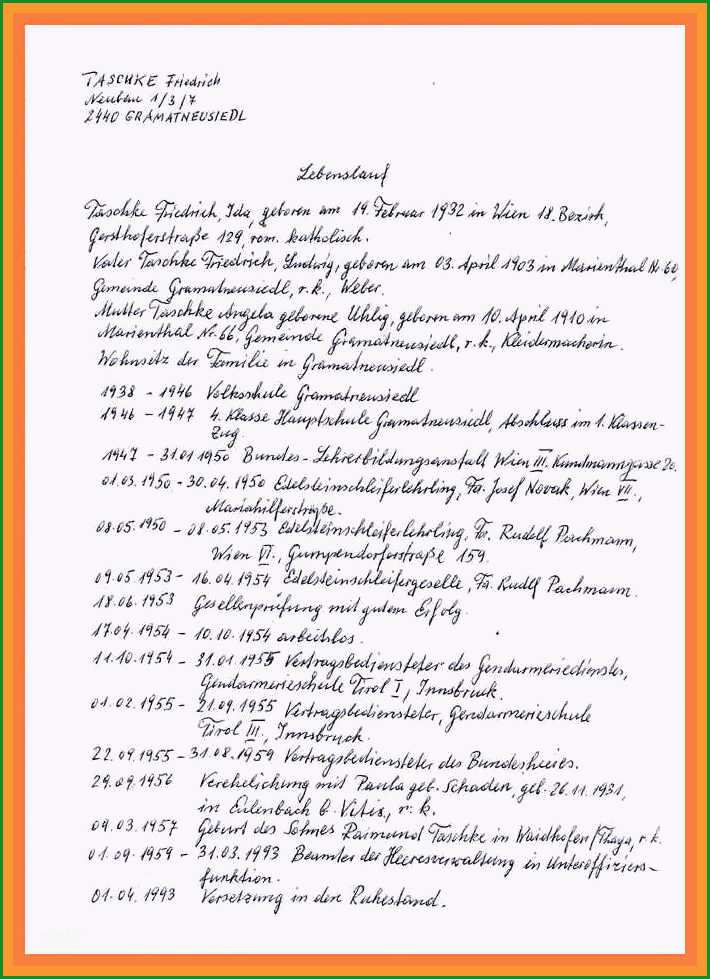 TASCHKE Friedrich
Neubau 1/3/7
2440 GRAMATNEUSIEDL
Lebenslauf
Taschke Friedrich, Ida, geboren am 14. Februar 1932 in Wien 18. Bezirk,
Gersthoferstraße 129, röm. katholisch.
Vater Taschke Friedrich, Ludwig, geboren am 03. April 1903 in Marienthal Nr. 60,
Gemeinde Gramatneusiedl, r. k., Weber.
Mutter Taschke Angela geborene Uhlig, geboren am 10. April 1910 in
Marienthal Nr. 66, Gemeinde Gramatneusiedl, r. k., Kleidermacherin.
Wohnsitz der Familie in Gramatneusiedl.
1938 - 1946 Volksschule Gramatneusiedl
1946 - 1947 4. Klasse Hauptschule Gramatneusiedl, Abschluss im 1. Klassen-
Zug.
1947 - 31.01.1950 Bundes-Lehrerbildungsanstalt Wien III. Kundmanngasse 20.
01.03.1950 - 30.04.1950 Edelsteinschleiferlehrling, Fa. Josef Novak, Wien VII.,
Mariahilferstraße.
08.05.1950 - 08.05.1953 Edelsteinschleiferlehrling, Fa. Rudolf Pachmann,
Wien VI., Gumpendorferstraße 159.
09.05.1953 - 16.04.1954 Edelsteinschleifergeselle, Fa. Rudlf Pachmann.
18.06.1953 Gesellenprüfung mit gutem Erfolg.
17.04.1954 - 10.10.1954 arbeitslos.
11.10.1954 - 31.01.1955 Vertragsbediensteter des Gendarmeriedienstes,
Gendarmerieschule Tirol I, Innsbruck.
01.02.1955 - 21.09.1955 Vertragsbediensteter, Gendarmerieschule
Tirol III., Innsbruck.
22.09.1955 - 31.08.1959 Vertragsbediensteter des Bundesheeres.
29.09.1956 Verehelichung mit Paula geb. Schaden, geb. 26.11.1931,
in Eulenbach b. Vitis, r. k.
09.03.1957 Geburt des Sohnes Raimund Taschke in Waidhofen/Thaya, r. k.
01.09.1959 - 31.03.1993 Beamter der Heeresverwaltung in Unteroffiziers-
funktion.
01.04.1993 Versetzung in den Ruhestand.